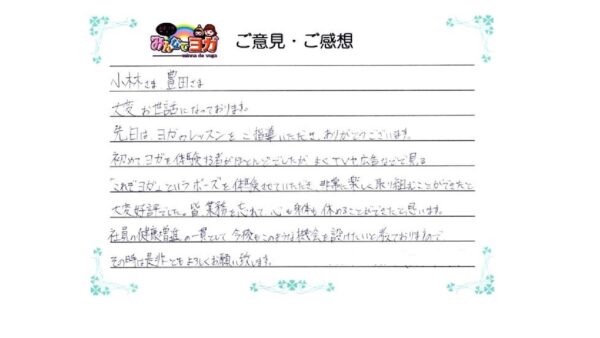 みんなでヨガ
minna de yoga
ご意見・ご感想
小林さま 豊田さま
大変お世話になっております。
先日はヨガのレッスンをご指導いただき、ありがとうございます。
初めてヨガを体験する者がほとんどでしたが よくTVや広告などで見る
"これぞヨガ"というポーズを体験させていただき、非常に楽しく取り組むことができたと
大変好評でした。皆 業務を忘れて、心も身体も休めることができたと思います。
社員の健康増進の一貫として 今後もこのような機会を設けたいと考えておりますので
その時は是非ともよろしくお願い致します。